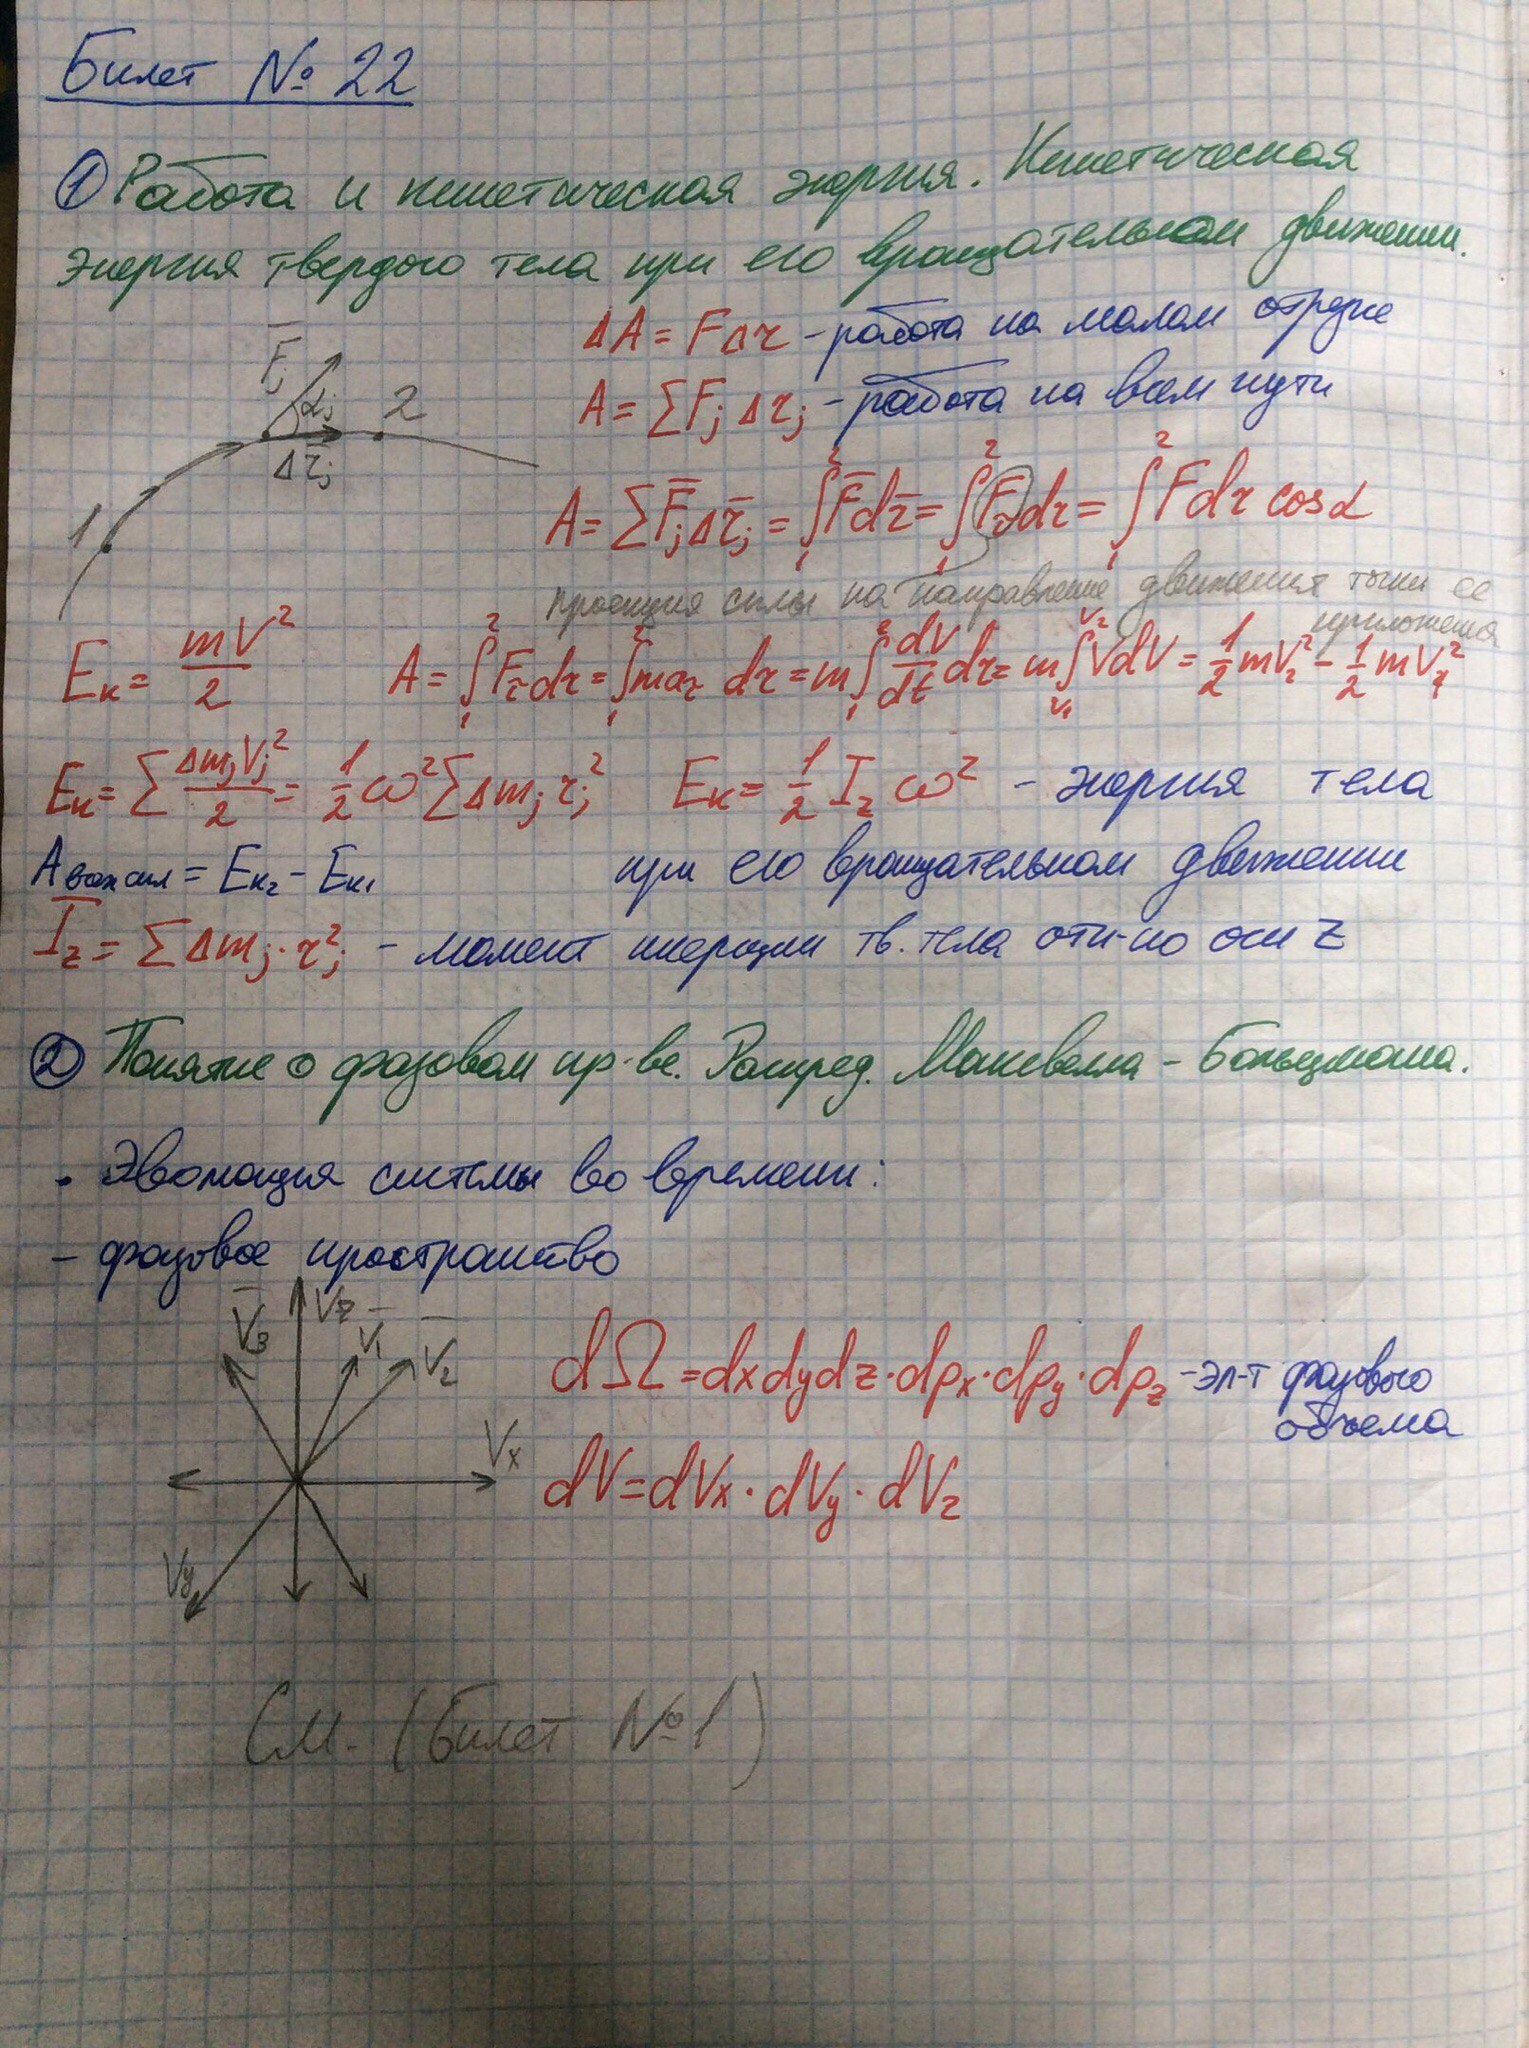 Билет № 22
① Работа и кинетическая энергия. Кинетическая
энергия твердого тела при его вращательном движении.
F̅j
αj
2
Δr̅j
1
ΔA = FΔr - работа на малом отрезке
A = ∑Fj Δrj - работа на всем пути
A = ∑F̅jΔr̅j = ∫₁² F̅dr̅ = ∫₁² Fτdr = ∫₁² Fdr cosα
проекция силы на направление движения точки ее
приложения
Eк = mV²/2
A = ∫₁² Fτdr = ∫₁² maτ dr = m∫₁² dV/dt dr = m∫V₁^V₂ VdV = 1/2 mV₂² - 1/2 mV₁²
Eк = ∑ ΔmjVj²/2 = 1/2 ω²∑Δmj rj²
Eк = 1/2 Iz ω² - энергия тела
при его вращательном движении
= Eк₂ - Eк₁
Iz = ∑Δmj · rj² - момент инерции тв. тела отн-но оси Z
② Понятие о фазовом пр-ве. Распред. Максвелла - Больцмана.
· Эволюция системы во времени:
- фазовое пространство
V̅3
Vz
V̅1
V̅2
Vx
Vy
dΩ = dxdydz · dpx · dpy · dpz - эл-т фазового
объема
dV = dVx · dVy · dVz
См. (Билет №1)